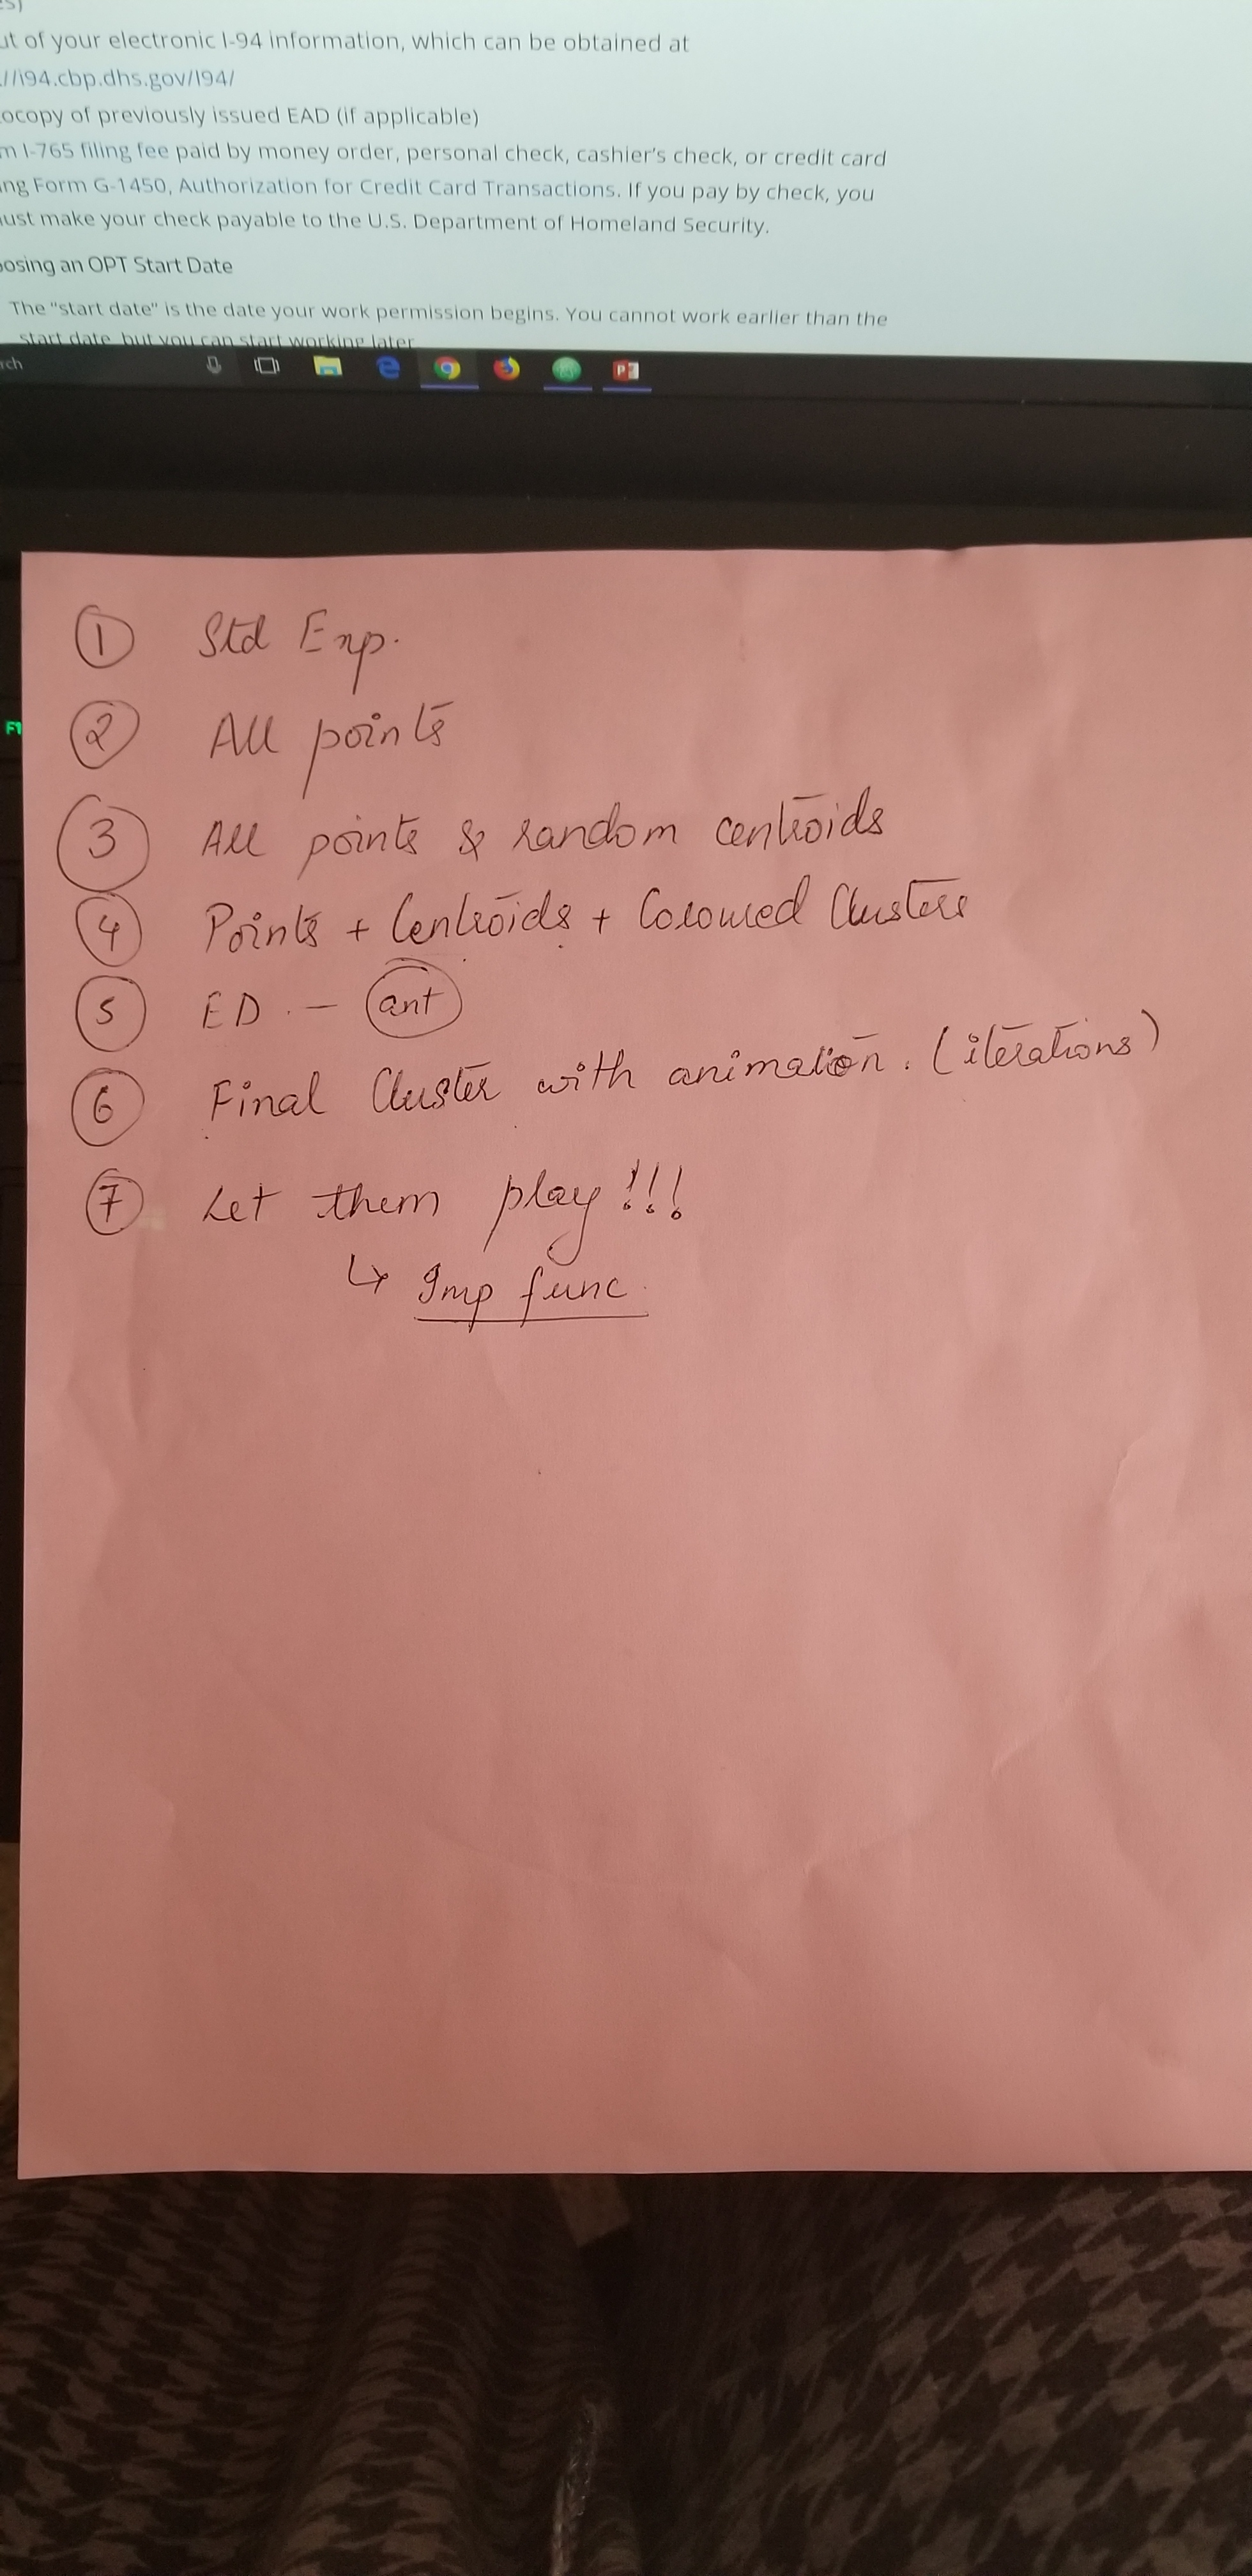 ut of your electronic I-94 information, which can be obtained at
://i94.cbp.dhs.gov/I94/
ocopy of previously issued EAD (if applicable)
m I-765 filing fee paid by money order, personal check, cashier's check, or credit card
ing Form G-1450, Authorization for Credit Card Transactions. If you pay by check, you
ust make your check payable to the U.S. Department of Homeland Security.
osing an OPT Start Date
The "start date" is the date your work permission begins. You cannot work earlier than the
start date, but you can start working later
rch
① Std Exp.
② All points
③ All points & random centroids
④ Points + Centroids + Coloured Clusters
⑤ ED. - ant
⑥ Final Cluster with animation. (iterations)
F1
⑦ Let them play!!!
↳ Imp func.